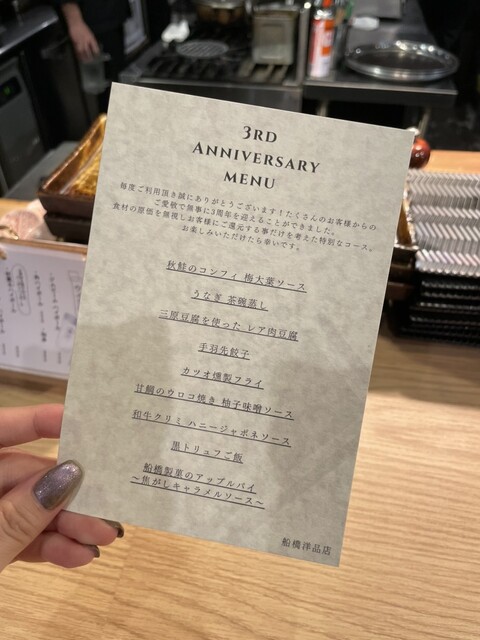 3RD
ANNIVERSARY
MENU
毎度ご利用頂き誠にありがとうございます！たくさんのお客様からの
ご愛敬で無事に3周年を迎えることができました。
食材の原価を無視しお客様にご還元する事だけを考えた特別なコース。
お楽しみいただけたら幸いです。
秋鮭のコンフィ 梅大葉ソース
うなぎ 茶碗蒸し
三原豆腐を使った レア肉豆腐
手羽先餃子
カツオ燻製フライ
甘鯛のウロコ焼き 柚子味噌ソース
和牛クリミ ハニージャポネソース
黒トリュフご飯
船橋製菓のアップルパイ
〜焦がしキャラメルソース〜
船橋洋品店